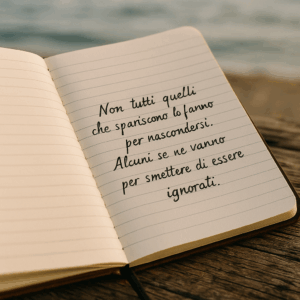 Non tutti quelli
che spariscono lo fanno
per nascondersi.
Alcuni se ne vanno
per smettere di essere
ignorati.